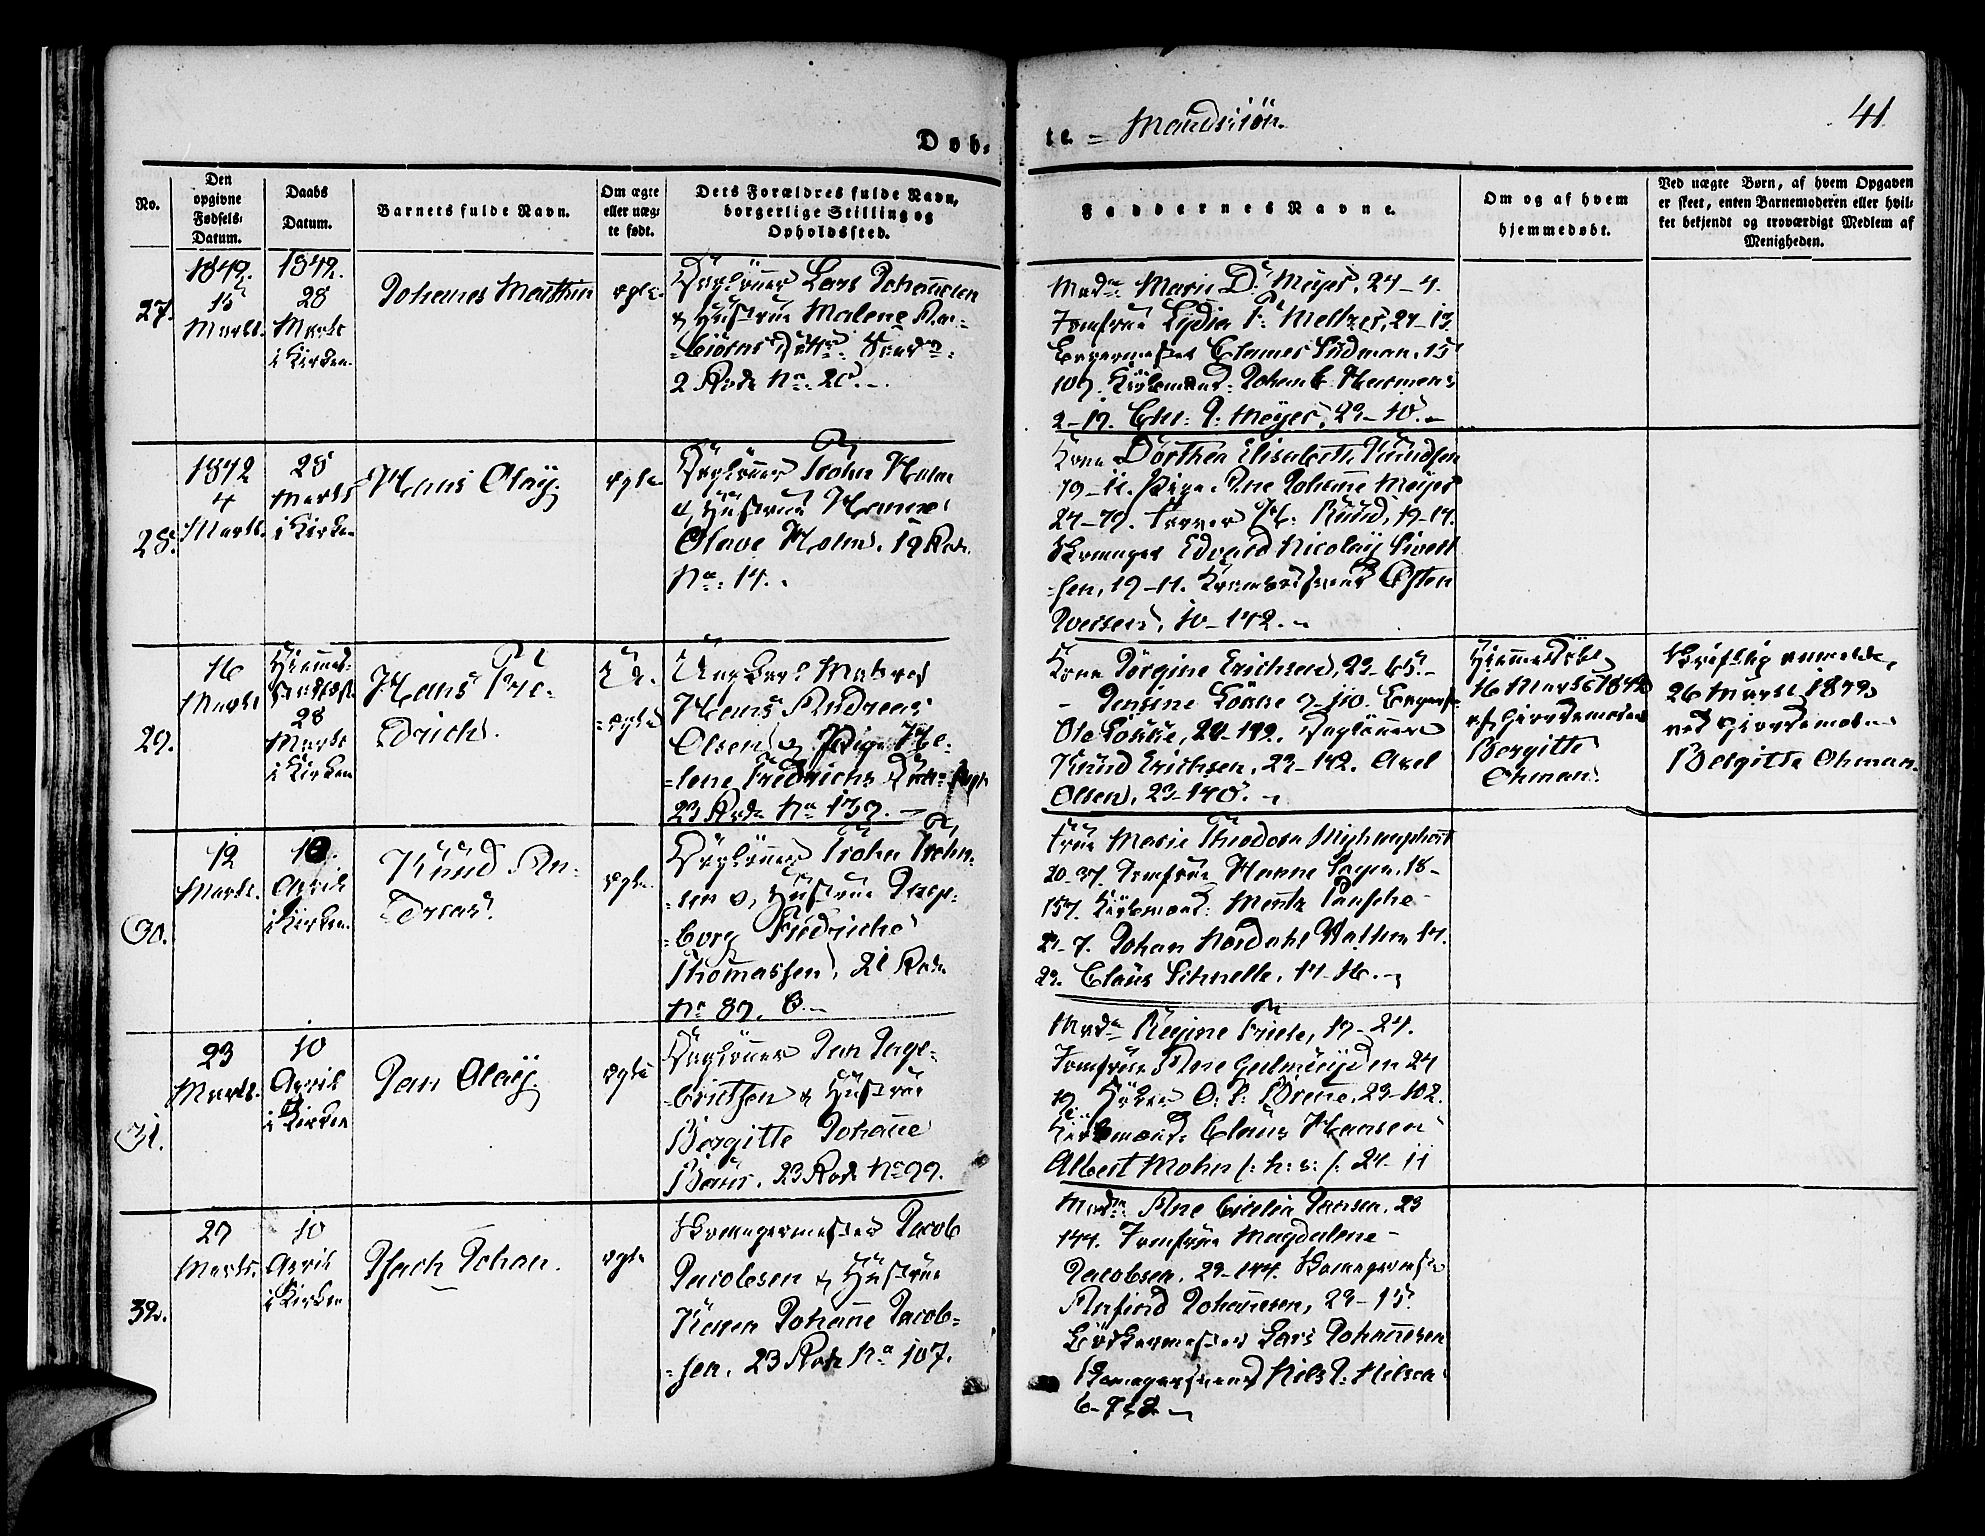 Døb-
te. = Mandkiön.
41
No.
Den opgivne Fødsels-Datum.
Daabs Datum.
Barnets fulde Navn.
Om ægte eller uægte født.
Dets Forældres fulde Navn, borgerlige Stilling og Opholdssted.
Faddernes Navne.
Om og af hvem hjemmedøbt.
Ved uægte Børn, af hvem Opgaven er skeet, enten Barnemoderen eller hvilket bekjendt og troværdigt Medlem af Menigheden.
27.
1842.
15
Marts.
1842.
28
Marts
i Kirken.
Johannes Mathias
ægte.
Daglönner Lars Johannesen
& Hustrue Malene
2 Rode No. 20.
Mad. Marie D. Meyer, 24-4.
Jomfrue Lydia P. Meltzer, 24-13.
Clames Südman, 15
107. Kiöbmand: Johan C. Hermans
2-19. Chr: J: Meyer, 23-10.
28.
1842
4
Marts.
28
Marts
i Kirken
Hans Olaÿ.
ægte
Daglönner Trohn Holm
& Hustrue
Olave Holm. 19 Rode
No. 14.
Kone Dorthea Elisabeth Knudsen
19-11. Pige Ane Johanne Meÿer
24-79. H: Rüüd, 19-14.
Edvard Nicolaÿ Sivert
=sen, 19-11. Østen
Iversen, 10-142.
29.
16
Marts
Hiemme-
28
Marts
i Kirken
Hans Fre-
drich.
U-
=ægte
Ungkarl Matros
Hans Andreas
Olsen & Pige He-
=lene Fredrichs Datter
23 Rode No 139.
Kone Jörgine Erichsen, 23-65.
Jensine
Ole
Knüd Erichsen, 23-142. Axel
Olsen, 23-140.
Hiemmedöbt
16 Marts 1842
af Giordemoder
Bergitte
Öhman.
Skriftlig anmeldt
26 Marts 1842
ved Giordemoder
Bergitte Öhman.
30.
12
Marts.
10.
April
i Kirken.
Knüd An-
dreas.
ægte.
Daglönner Trohn Trohn-
=sen & Hustrue Inge-
=borg Fredricke
Thomassen, 21 Rode
No 87. B.
Frue Marie Theodora
20-37. Jomfrue Hanne Sagen. 18-
157. Kiöbmand: Mentz
21-7. Johan Nordahl 14.
22. Claüs Schnelle, 14-16.
31.
23
Marts.
10
April
i Kirken
Jan Olaÿ.
ægte
Daglönner Jan Inge-
=brictsen & Hustrue
Bergitte Johanne
23 Rode No 99.
Mad. Regine Friele, 17-24.
Jomfrue Ane Geelmüÿden 24
19. O: P: 23-102.
Kiöbmand: Claüs Hansen
Albert Mohn /: h: s: /: 24-11
32.
27
Marts.
10
April
i Kirken
Isach Johan.
ægte
Skomagermester Jacob
Jacobsen & Hustrue
Karen Johanne Jacob-
=sen. 23 Rode No 107.
Mad. Ane Cicilia Jansen. 23
144. Jomfrue Magdalene
Jacobsen. 23-144. Skomagermester
Anfind Johannesen, 23-15.
Bödkermester Lars Johannesen
Skomagersvend Nils J: Nilsen
6-